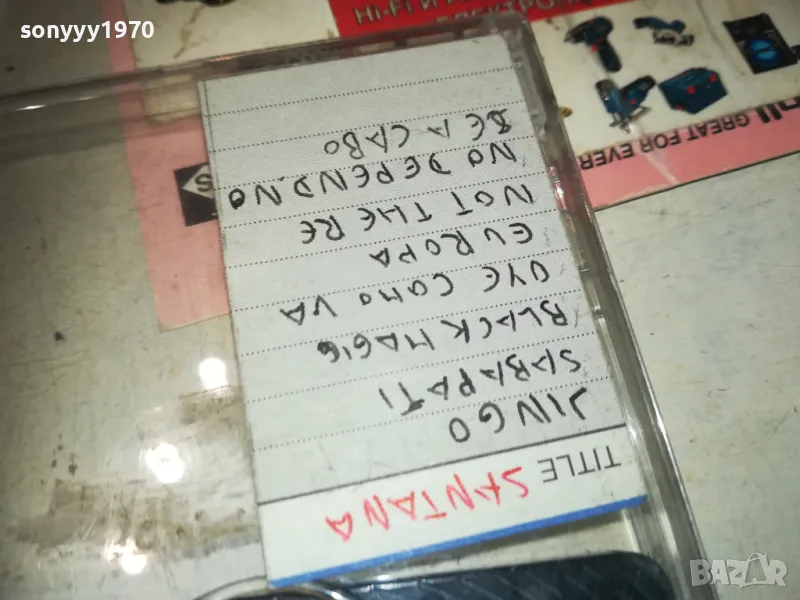 sonyyy1970
Hi-Fi И
GREAT FOR EVER
TITLE SANTANA
JINGO
SABAPATI
BLACK MAGIG
OYE COMO VA
EUROPA
NOT THERE
NO DEPEND.NO
BE A CABO
BAZAR